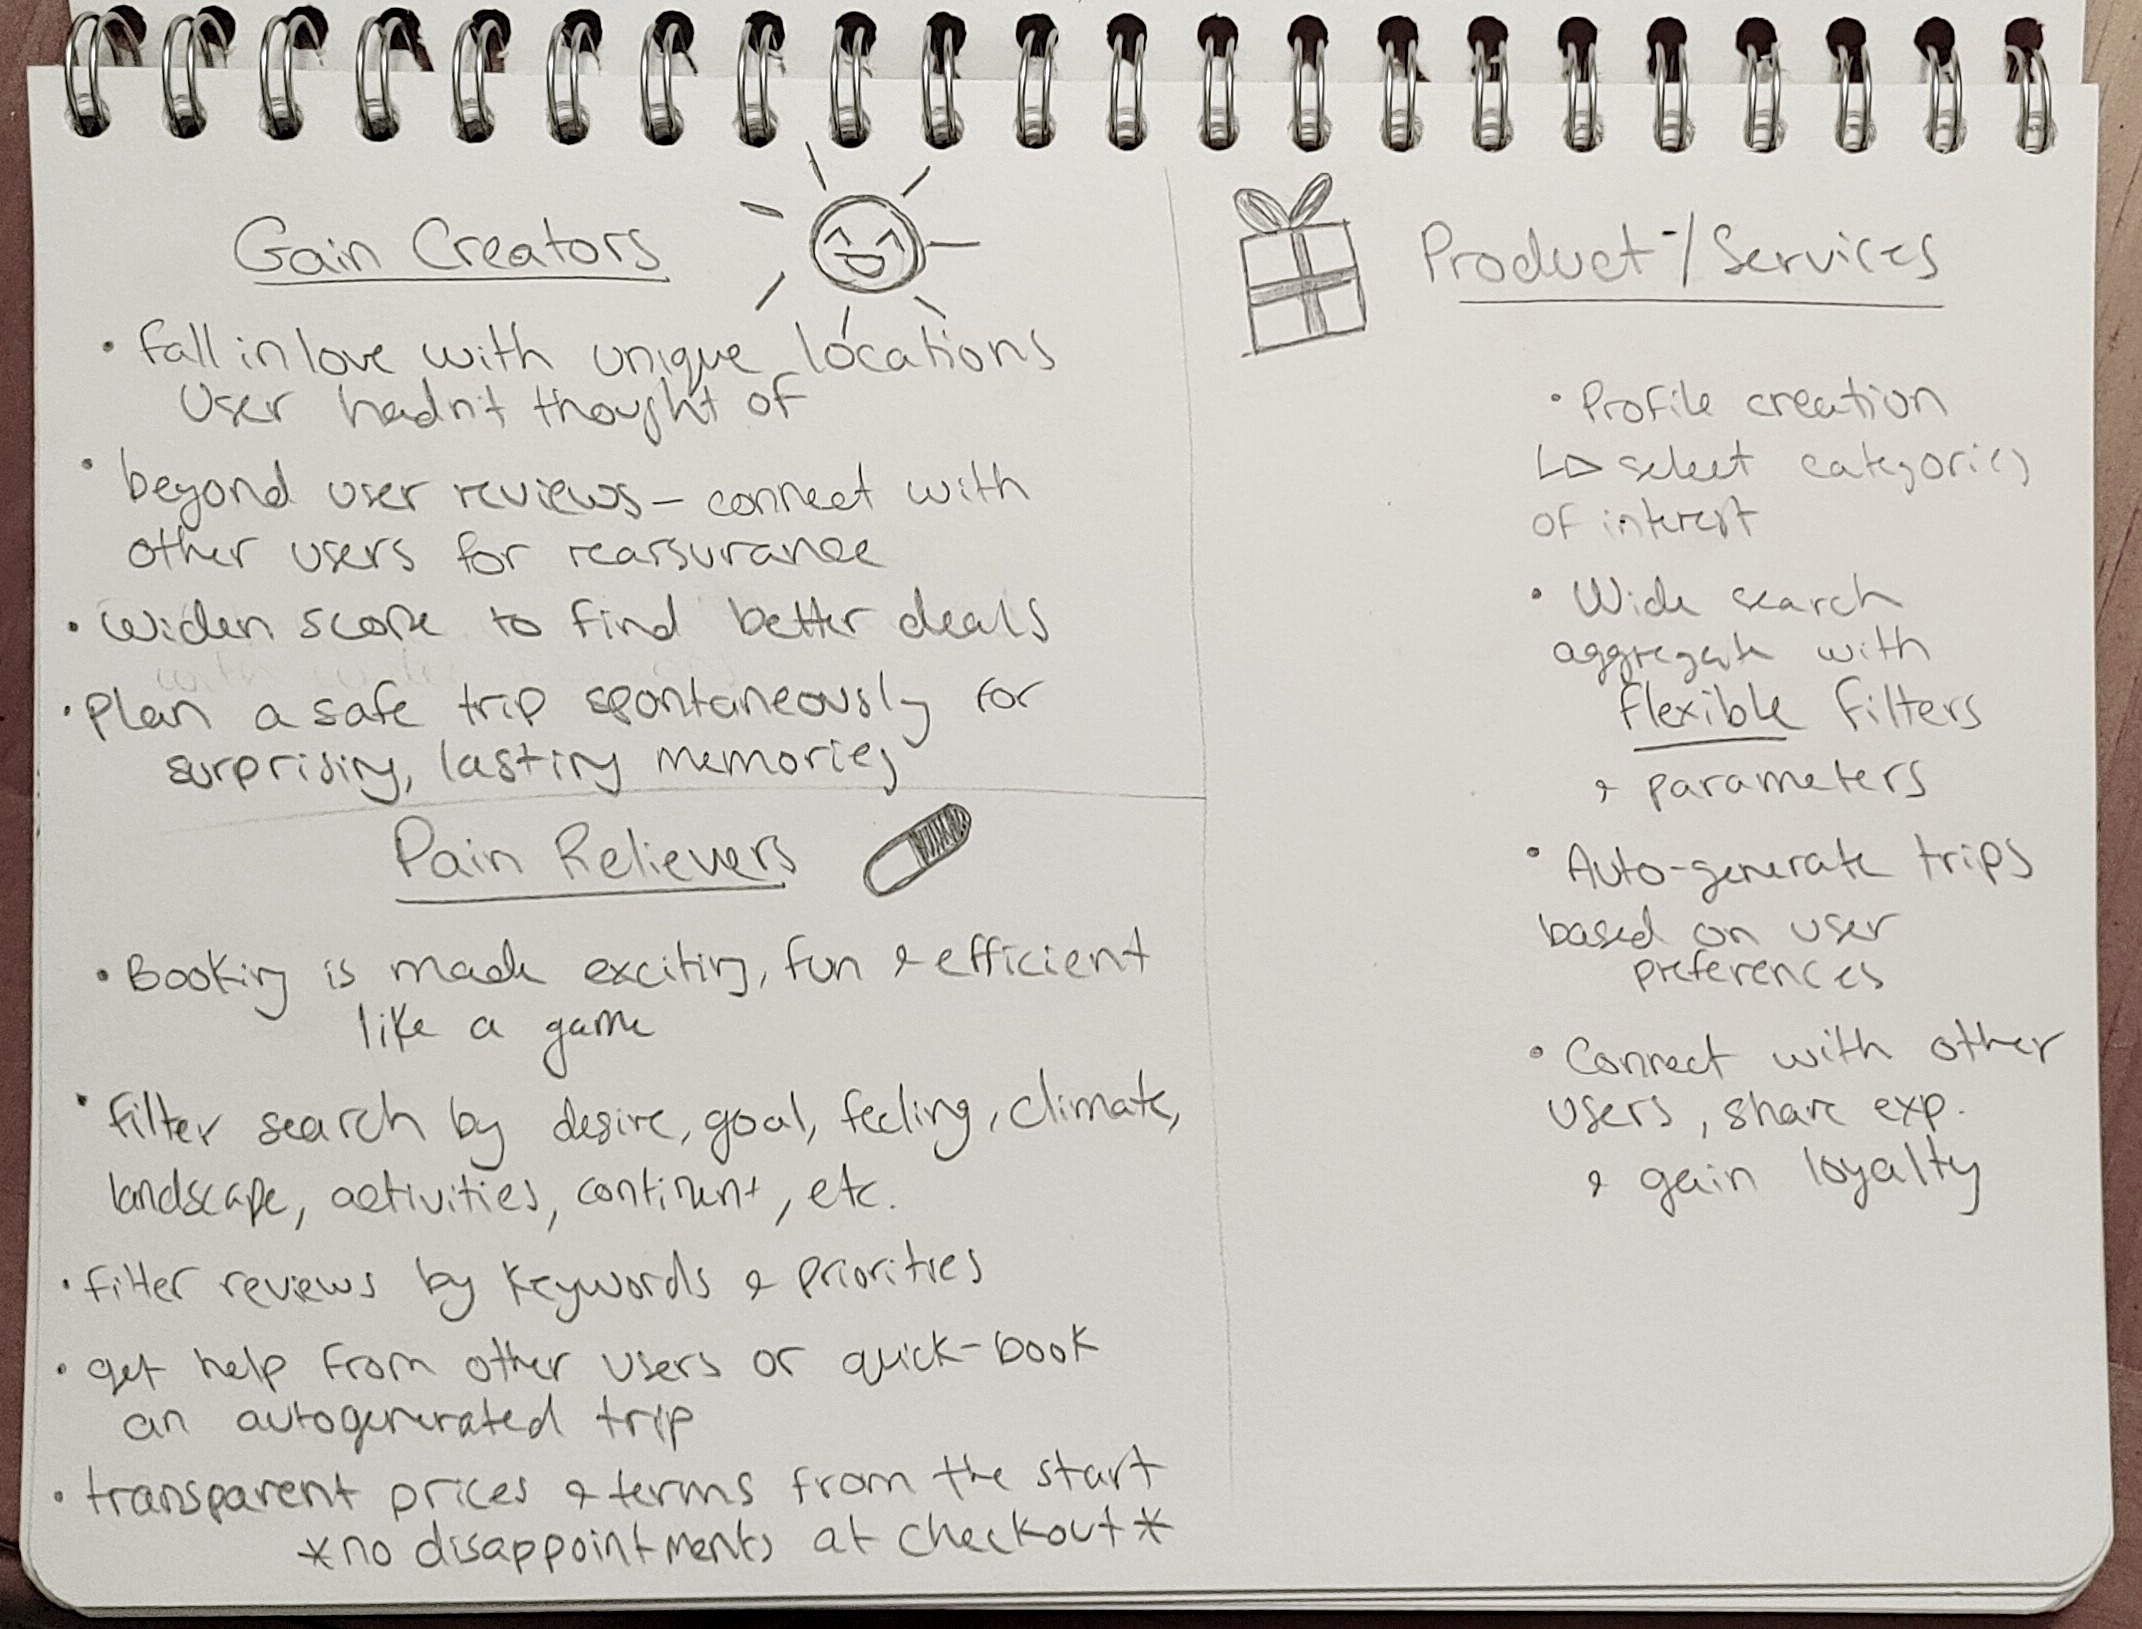 Gain Creators
• fall in love with unique locations
User hadn't thought of
• beyond user reviews – connect with
other users for reassurance
• widen scope to find better deals
• plan a safe trip spontaneously for
surprising, lasting memories
Pain Relievers
• Booking is made exciting, fun & efficient
like a game
• filter search by desire, goal, feeling, climate,
landscape, activities, continent, etc.
• filter reviews by keywords & priorities
• get help from other users or quick-book
an autogenerated trip
• transparent prices & terms from the start
*no disappointments at checkout*
Product-/Services
• Profile creation
↳ select categories
of interest
• Wide search
aggregate with
flexible filters
& parameters
• Auto-generate trips
based on user
preferences
• Connect with other
users, share exp.
& gain loyalty